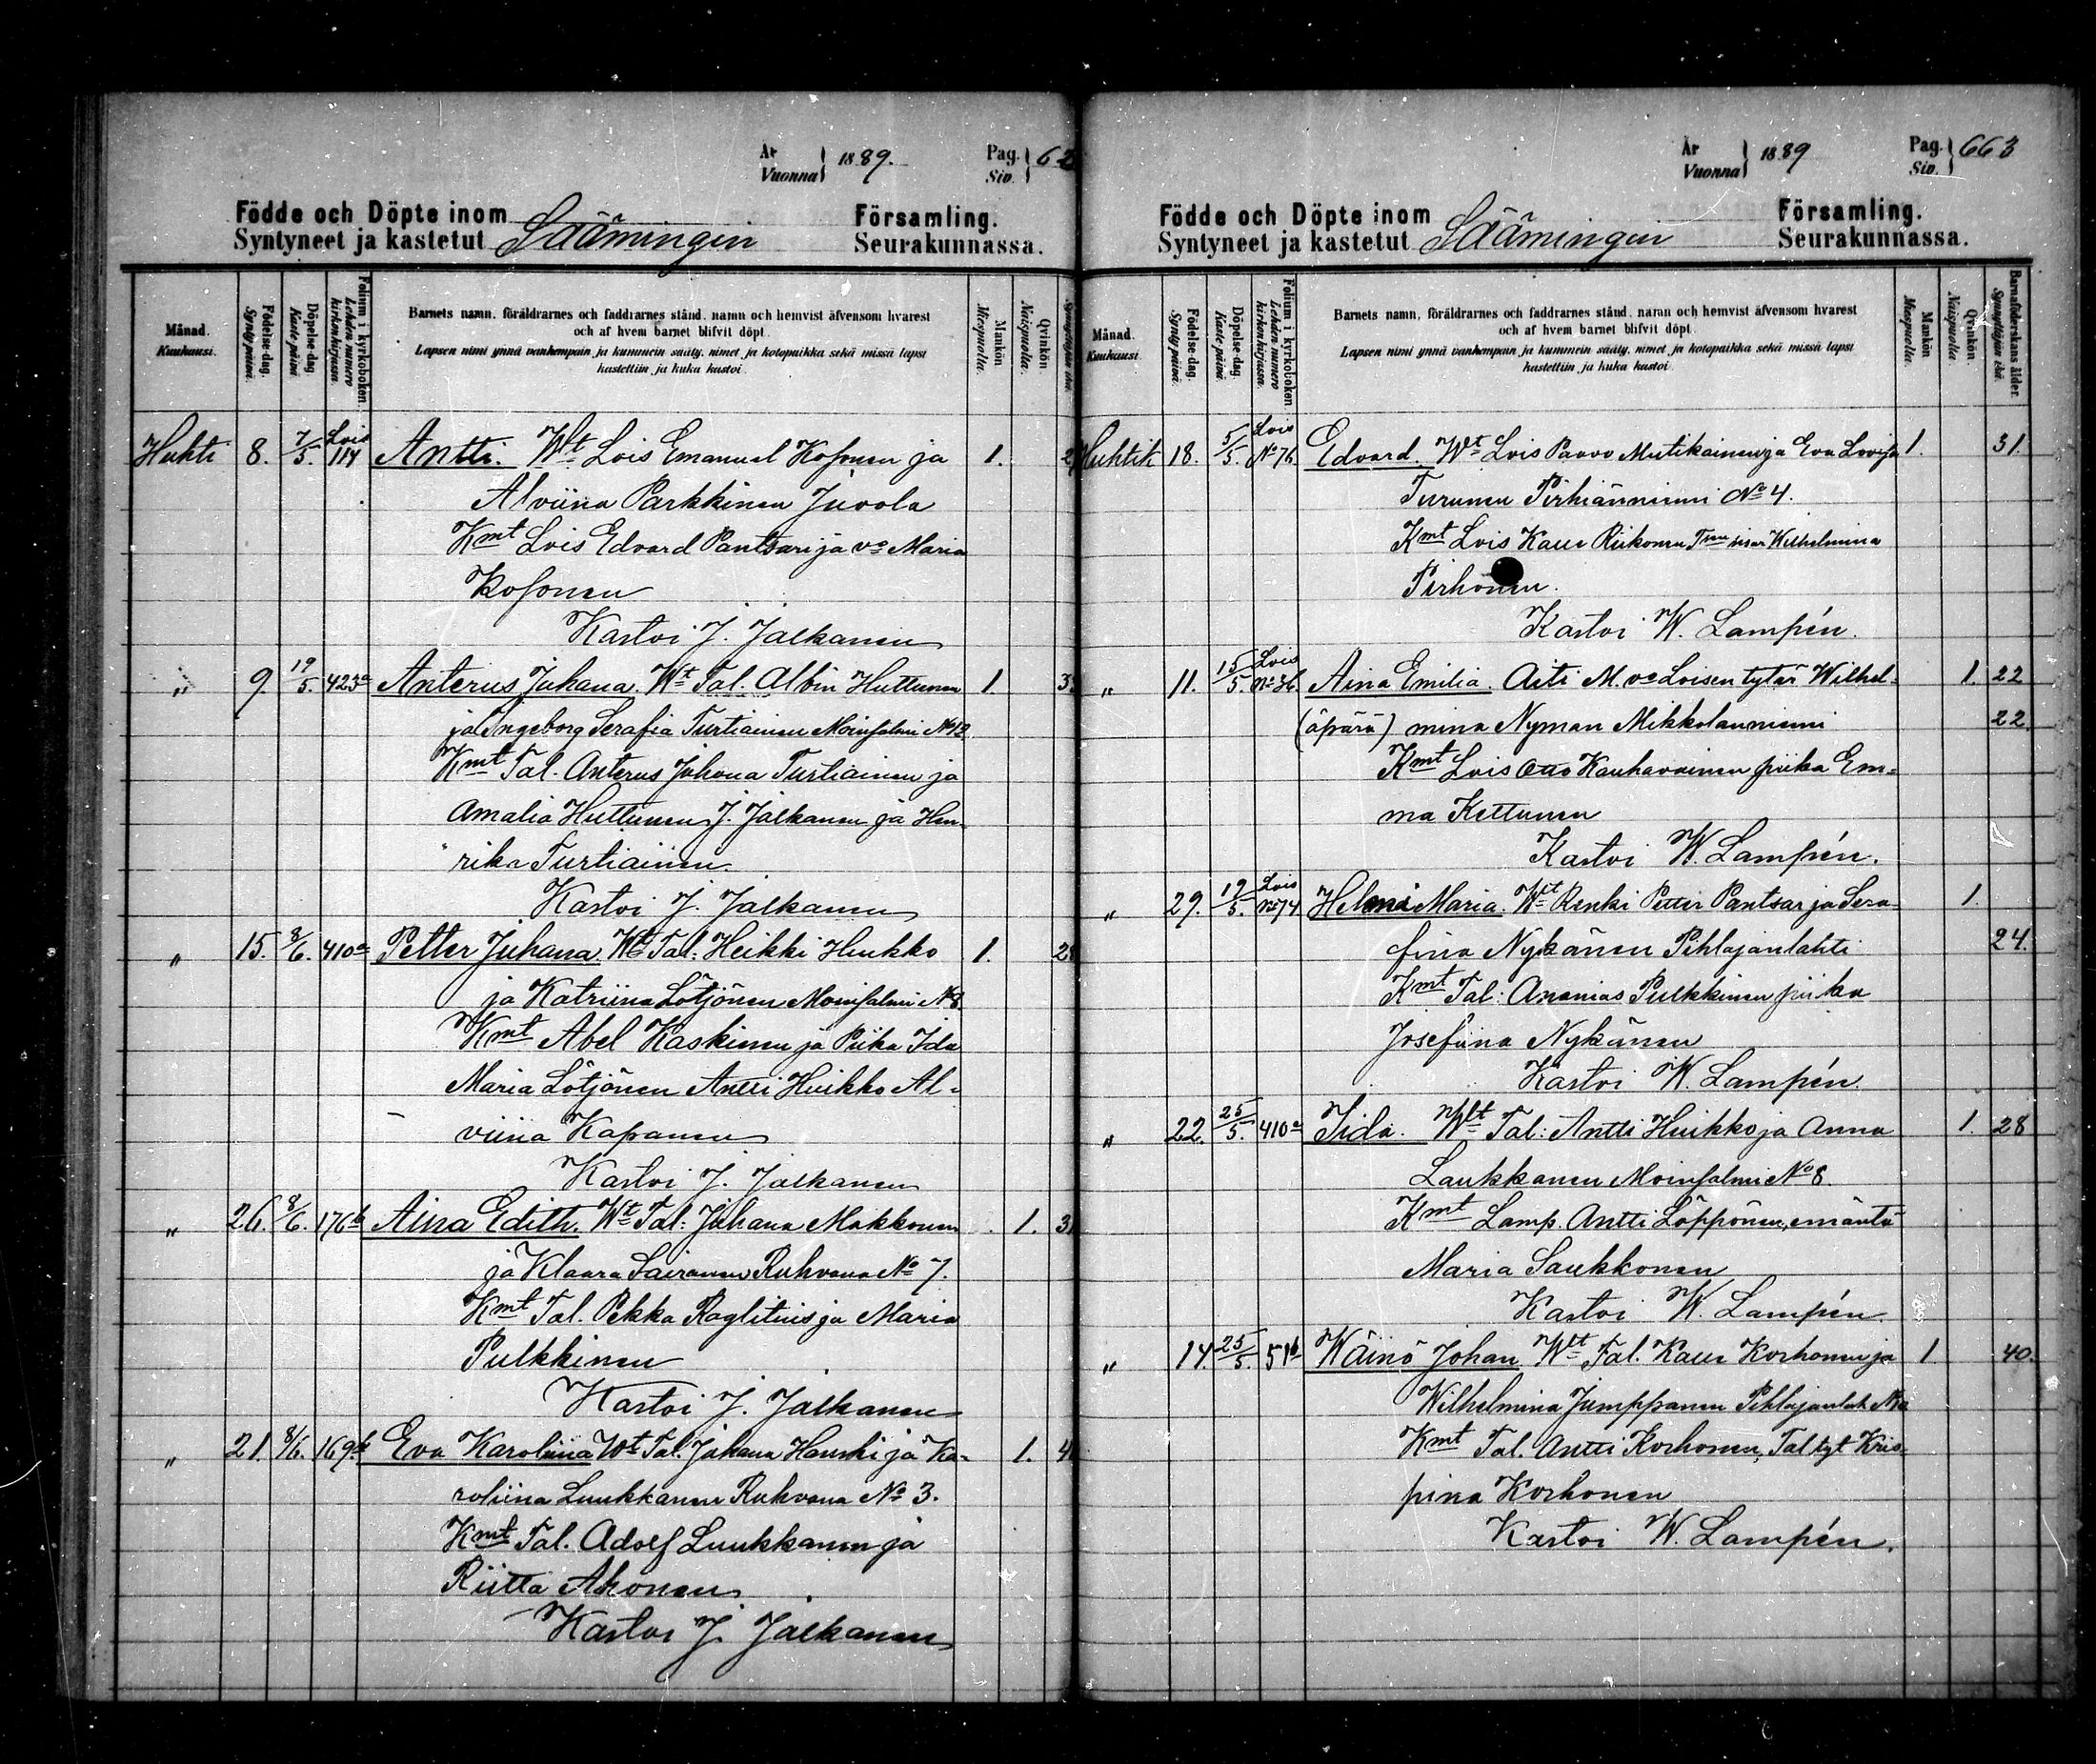 År
Vuonna } 1889. Pag.
Siv. } 62
Födde och Döpte inom Församling.
Syntyneet ja kastetut Säämingin Seurakunnassa.
Månad.
Kuukausi.
Födelse-dag.
Synty päivä.
Döpelse-dag.
Kaste päivä
Folium i kyrkoboken
Lehden numero
kirkonkirjassa.
Barnets namn, föräldrarnes och faddrarnes stånd, namn och hemvist äfvensom hvarest
och af hvem barnet blifvit döpt.
Lapsen nimi ynnä vanhempain ja kummein sääty, nimet ja kotopaikka sekä missä lapsi
kastettiin ja kuka kastoi.
Mankön
Miespuolia.
Qvinkön
Naispuolia.
Huhti 8. 7/5. Lois 114 Antti. Wt Lois Emanuel Kosonen ja 1. 2
Alviina Parkkinen Juvola
Kmt Lois Edvard Pantsari ja vo Maria
Kosonen
Kastoi J. Jalkanen
" 9 19/5. 423a Anterus Juhana. Wt Tal. Albin Huttunen 1. 3
ja Ingeborg Serafia Turtiainen Moinsalmi No 12
Kmt Tal. Anterus Johana Turtiainen ja
Amalia Huttunen J. Jalkanen ja Hen-
rika Turtiainen.
Kastoi J. Jalkanen
" 15. 8/6. 410a Petter Juhana. Wt Tal: Heikki Huikko 1. 28
ja Katriina Lötjönen Moinsalmi No 8.
Kmt Abel Kaskinen ja Piika Ida
Maria Lötjönen Antti Huikko Al-
viina Kapanen
Kastoi J. Jalkanen
" 26. 8/6. 176b Aina Edith. Wt Tal: Juhana Makkonen 1. 3
ja Klaara Sairanen Ruhvana No 7.
Kmt Tal. Pekka Raglitius ja Maria
Pulkkinen
Kastoi J. Jalkanen
" 21. 8/6. 169b Eva Karoliina Wt Tal. Juhana Hauski ja Ka-
1. 4
roliina Luukkanen Ruhvana No 3.
Kmt Tal. Adolf Luukkanen ja
Riitta Ahonen
Kastoi J. Jalkanen
År
Vuonna } 1889 Pag.
Siv. } 663
Födde och Döpte inom Församling.
Syntyneet ja kastetut Säämingin Seurakunnassa.
Månad.
Kuukausi.
Födelse-dag.
Synty päivä.
Döpelse-dag.
Kaste päivä
Folium i kyrkoboken
Lehden numero
kirkonkirjassa.
Barnets namn, föräldrarnes och faddrarnes stånd, namn och hemvist äfvensom hvarest
och af hvem barnet blifvit döpt.
Lapsen nimi ynnä vanhempain ja kummein sääty, nimet ja kotopaikka sekä missä lapsi
kastettiin ja kuka kastoi.
Mankön
Miespuolia.
Qvinkön.
Naispuolia.
Barnaföderskans ålder.
Synnyttäjän ikä.
Huhtik 18. 5/5. Lois No 76 Edvard. Wt Lois Paavo Mutikainen ja Eva Loviisa 1. 31.
Turunen Pirhiänniemi No 4.
Kmt Lois Kalle Riikonen Wilhelmina
Pirhonen.
Kastoi W. Lampén.
" 11. 15/5. Lois No 36 Aina Emilia. Äiti M. vo Loisen tytär Wilhel- 1. 22
(äpärä) mina Nyman Mikkolanniemi 22
Kmt Lois Otto Kauhavainen piika Em-
ma Kettunen
Kastoi W. Lampén.
" 29. 19/5. Lois No 74 Helmi Maria. Wt Renki Petter Pantsar ja Sera- 1.
fina Nykänen Pihlajanlahti 24.
Kmt Tal: Ananias Pulkkinen piika
Josefiina Nykänen
Kastoi W. Lampén.
" 22. 25/5. 410a Iida. Wt Tal: Antti Huikko ja Anna 1. 28
Laukkanen Moinsalmi No 8.
Kmt Lamp. Antti Löppönen, emäntä
Maria Saukkonen
Kastoi W. Lampén.
" 14. 25/5. 51b Wäinö Johan Wt Tal. Kalle Korhonen ja 1 40.
Wilhelmina Jumppanen Pihlajanlah
Kmt Tal. Antti Korhonen, Tal tyt Kris-
pina Korhonen
Kastoi W. Lampén.